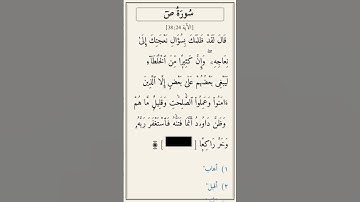 سُورَةُ صٓ
[الآية 38:24]
قَالَ لَقَدْ ظَلَمَكَ بِسُؤَالِ نَعْجَتِكَ إِلَىٰ
نِعَاجِهِۦ ۖ وَإِنَّ كَثِيرًا مِّنَ ٱلْخُلَطَآءِ
لَيَبْغِى بَعْضُهُمْ عَلَىٰ بَعْضٍ إِلَّا ٱلَّذِينَ
ءَامَنُوا۟ وَعَمِلُوا۟ ٱلصَّٰلِحَٰتِ وَقَلِيلٌ مَّا هُمْ
وَظَنَّ دَاوُۥدُ أَنَّمَا فَتَنَّٰهُ فَٱسْتَغْفَرَ رَبَّهُۥ
وَخَرَّ رَاكِعًا [ ]
١) أَهاب"
٢) أقبل"